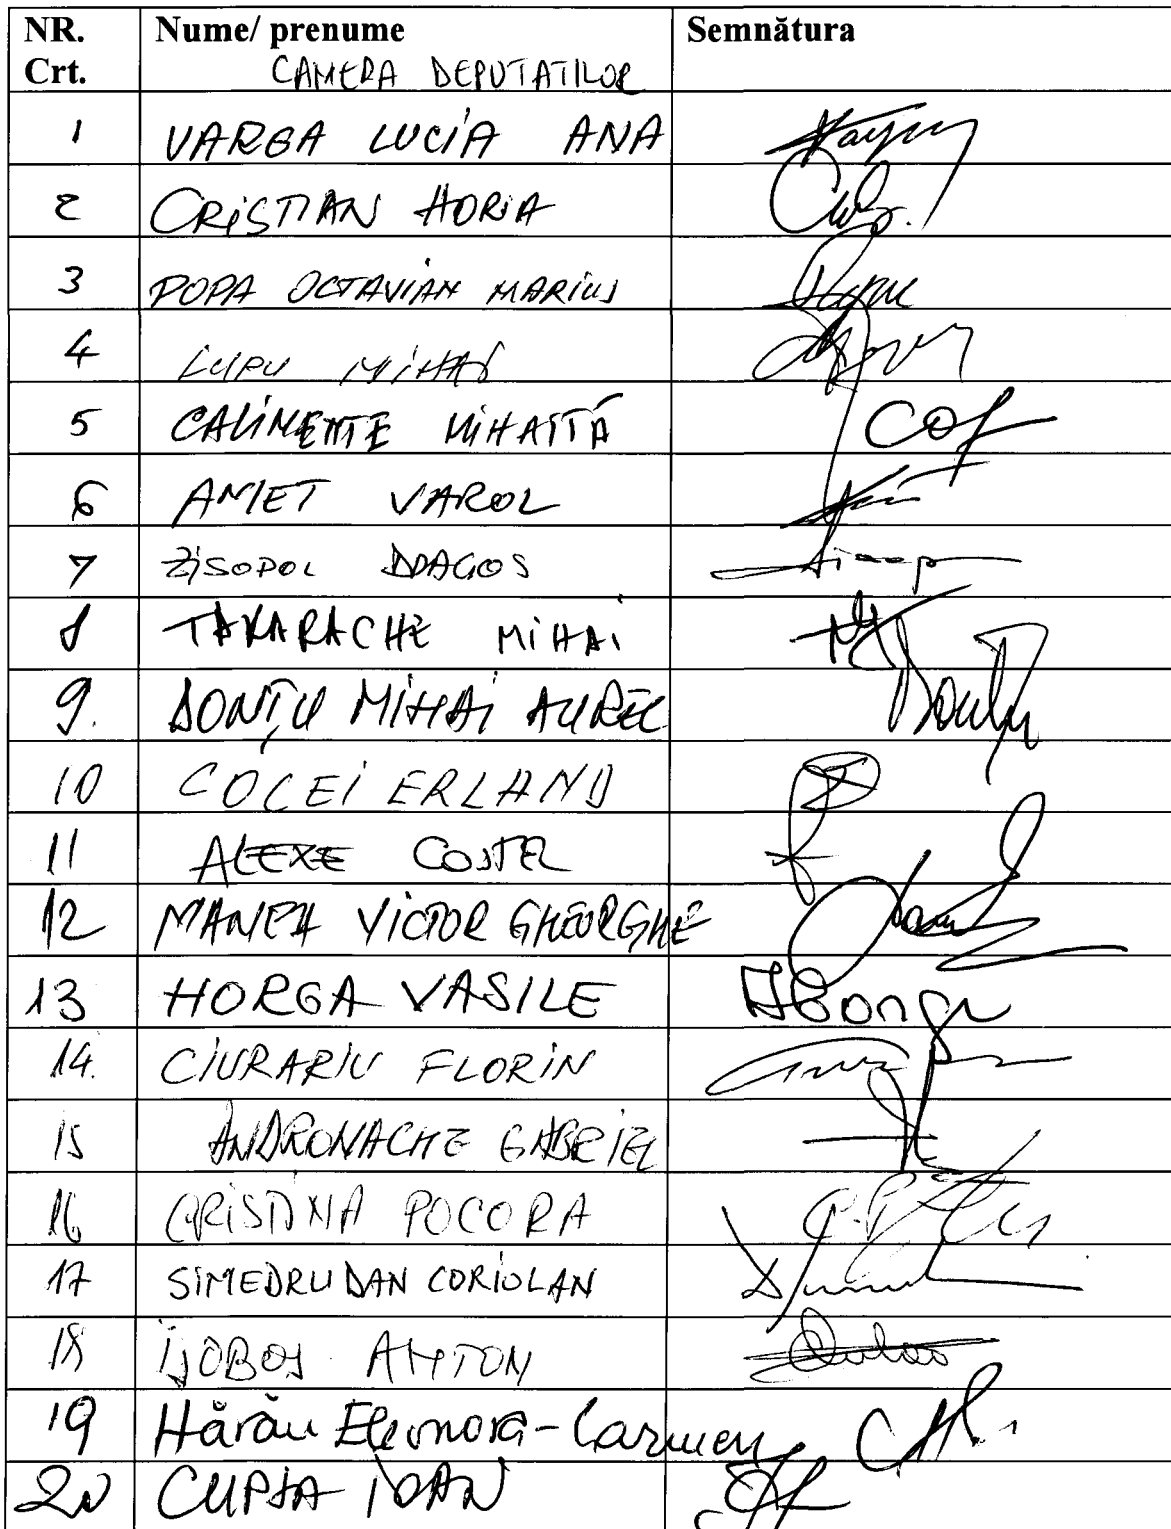 NR. Crt. Nume/ prenume Semnătura
CAMERA DEPUTATILOR
1 VARGA LUCIA ANA
2 CRISTIAN HORIA
3 POPA OCTAVIAN MARIUS
4 LUPU MIHAI
5 CALIMENTE MIHAITĂ
6 AMET VAROL
7 ZISOPOL DRAGOS
8 TANARACHE MIHAI
9. DONȚU MIHAI AUREL
10 COCEI ERLAND
11 ALEXE COSTEL
12 MANEA VICTOR GHEORGHE
13 HORGA VASILE
14. CIURARIU FLORIN
15 ANDRONACHE GABRIEL
16 CRISTINA POCORA
17 SIMEDRU DAN CORIOLAN
18 ANTON
19 Hărău Eleonora-Carmen
20 CUPȘA IOAN